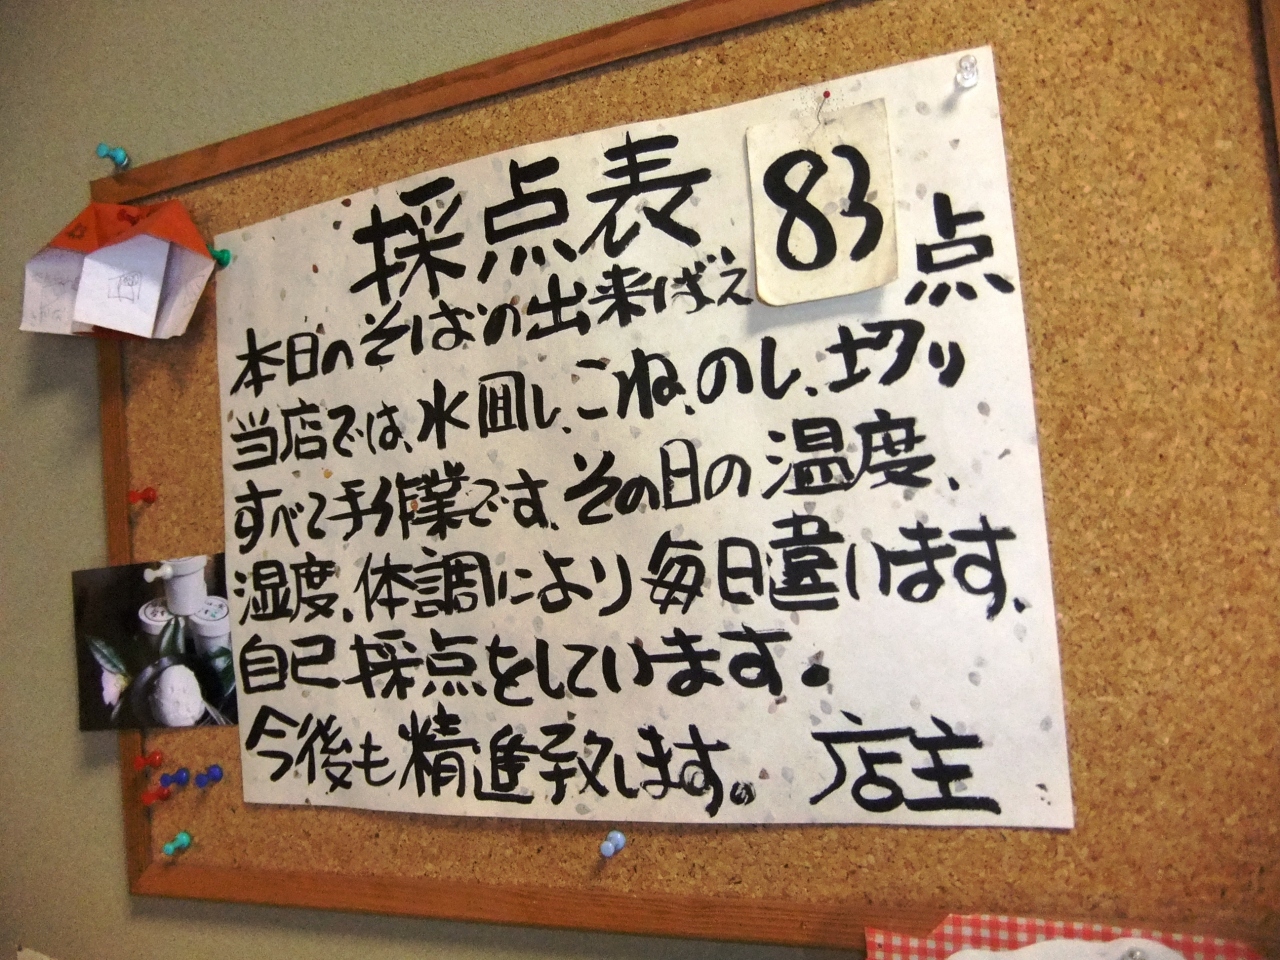 採点表
本日のそばの出来ばえ 83 点
当店では、水回し、こね、のし、切り
すべて手作業です。その日の温度、
湿度、体調により毎日違います、
自己採点をしています。
今後も精進致します。 店主